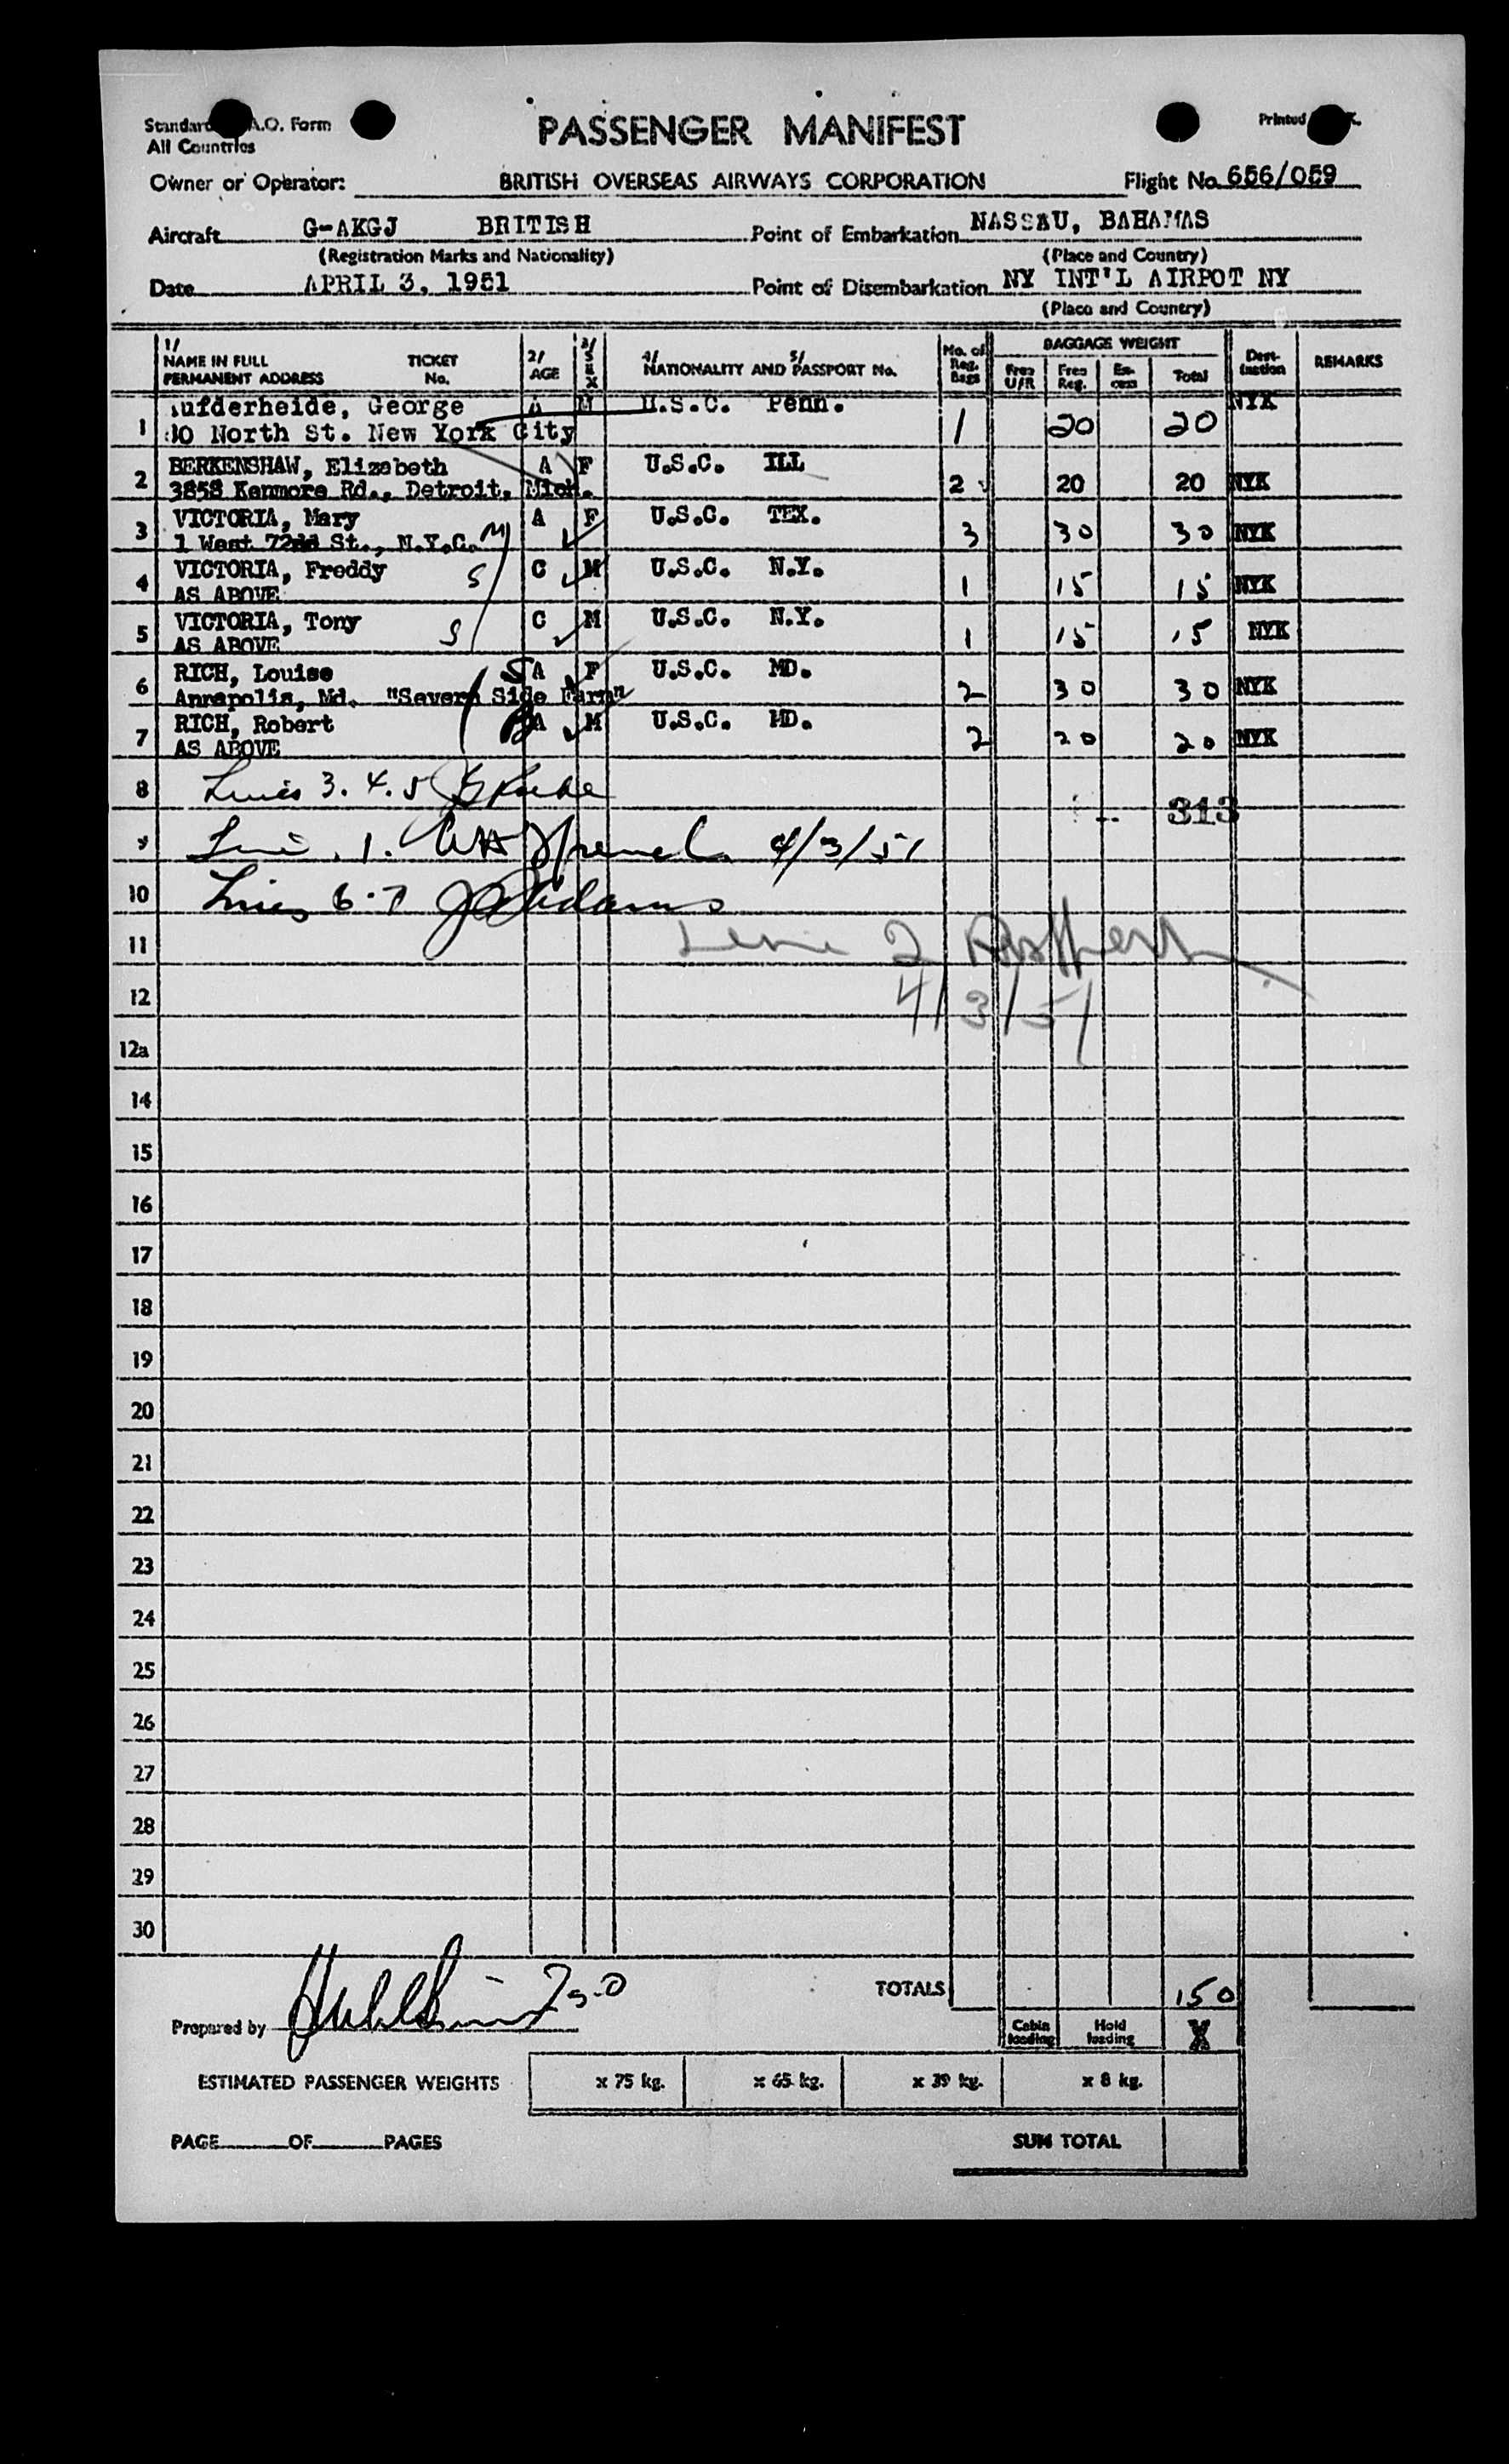 Standard A.O. Form
All Countries
PASSENGER MANIFEST
Printed
Owner or Operator: BRITISH OVERSEAS AIRWAYS CORPORATION Flight No. 656/059
Aircraft G-AKGJ BRITISH Point of Embarkation NASSAU, BAHAMAS
(Registration Marks and Nationality) (Place and Country)
Date APRIL 3, 1951 Point of Disembarkation NY INT'L AIRPOT NY
(Place and Country)
1/ NAME IN FULL PERMANENT ADDRESS TICKET No. 2/ AGE 3/ SEX 4/ NATIONALITY AND 5/ PASSPORT No. No. of Reg. Bags BAGGAGE WEIGHT Free U/R Free Reg. Ex-cess Total Dest-ination REMARKS
1 ufderheide, George A M U.S.C. Penn. 1 20 20 NYK
0 North St. New York City
2 BERKENSHAW, Elizabeth A F U.S.C. ILL 2 20 20 NYK
3858 Kenmore Rd., Detroit, Mich.
3 VICTORIA, Mary A F U.S.C. TEX. 3 30 30 NYK
1 West 72nd St., N.Y.C. M
4 VICTORIA, Freddy S C M U.S.C. N.Y. 1 15 15 NYK
AS ABOVE
5 VICTORIA, Tony S C M U.S.C. N.Y. 1 15 15 NYK
AS ABOVE
6 RICH, Louise S A F U.S.C. MD. 2 30 30 NYK
Annapolis, Md. "Severn Side Farm"
7 RICH, Robert A M U.S.C. MD. 2 20 20 NYK
AS ABOVE
8 Lines 3. 4. 5
313
9 Line 1. 4/3/51
10 Lines 6-7 Adams
11 Line 2
12 4/3/51
12a
14
15
16
17
18
19
20
21
22
23
24
25
26
27
28
29
30
TOTALS 150
Prepared by
Cabin loading Hold loading
ESTIMATED PASSENGER WEIGHTS x 75 kg. x 65 kg. x 39 kg. x 8 kg.
PAGE OF PAGES SUM TOTAL